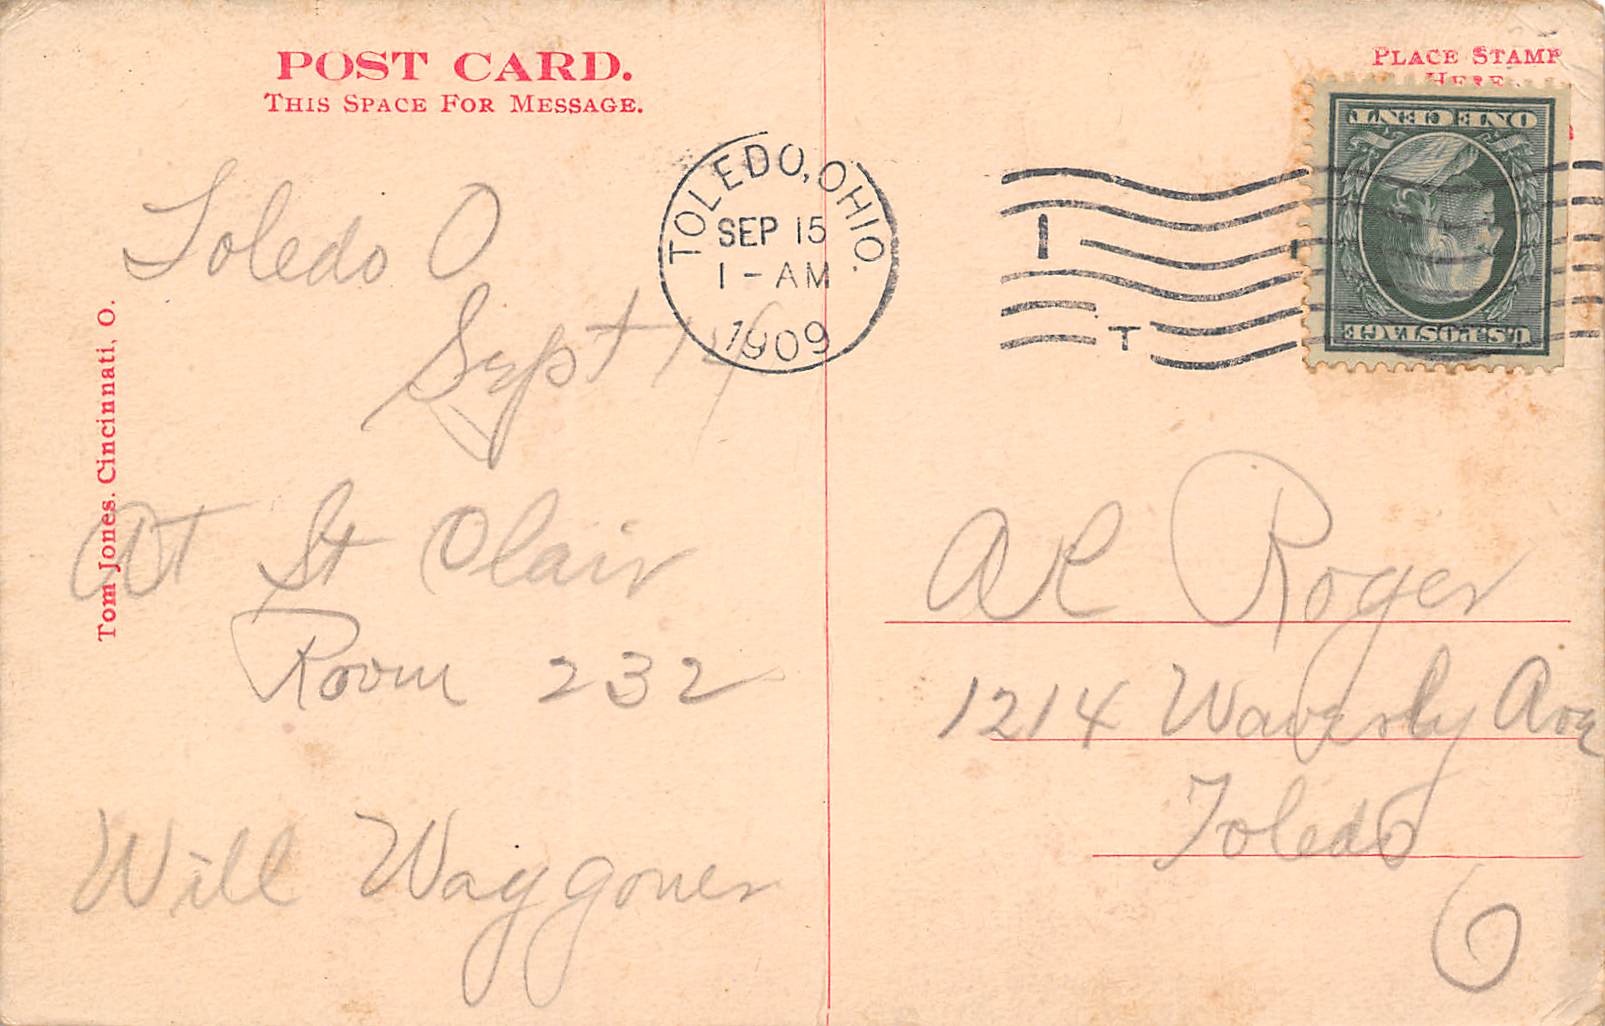 POST CARD.
THIS SPACE FOR MESSAGE.
PLACE STAMP
HERE
ONE CENT
U.S. POSTAGE
TOLEDO, OHIO.
SEP 15
1 - AM
1909
1
T
Tom Jones. Cincinnati, O.
Toledo O
Sept 14
At St Clair
Room 232
Will Waggoner
Al Roger
1214 Waverly Ave
Toledo
O